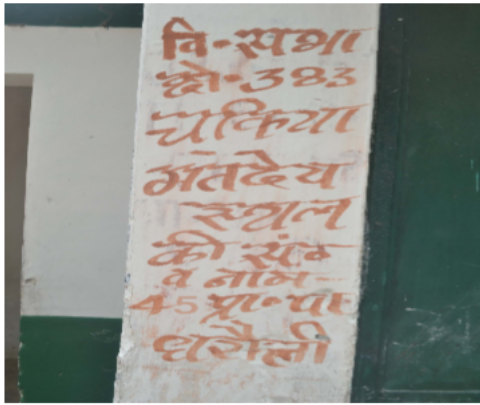 वि॰सभा
क्षे॰383
चकिया
मतदेय
स्थल
की सं॰
व नाम
45 प्रा॰पा
धरौली